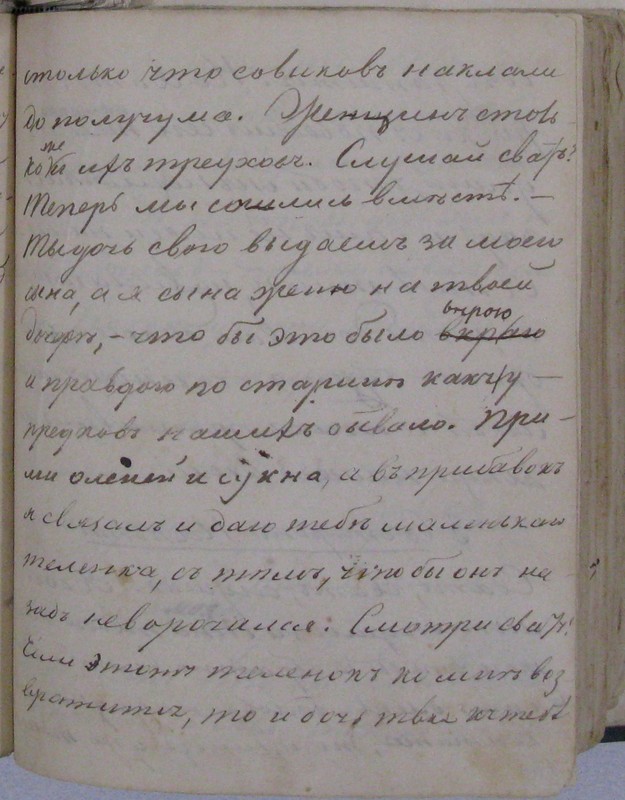 столько что совиковъ наклали
до получума. Женщинъ столь
кожъ ихъ треухом. Слушай сватъ!
Теперь мы сошлись вместѣ. —
Ты дочь свою выдаешь за моего
сына, а я сына женю на твоей
дочерѣ, — что бы это было вѣрою
и правдою по старинѣ какъ у —
предковъ нашихъ бывало. При —
ми оленей и сукна, а въ прибавокъ
я связалъ и даю тебѣ маленькаго
теленка, съ тѣмъ, что бы онъ на
задъ неворочался. Смотри сватъ!
Если этотъ теленокъ ко мнѣ воз
вратится, то и дочь твоя къ тебѣ